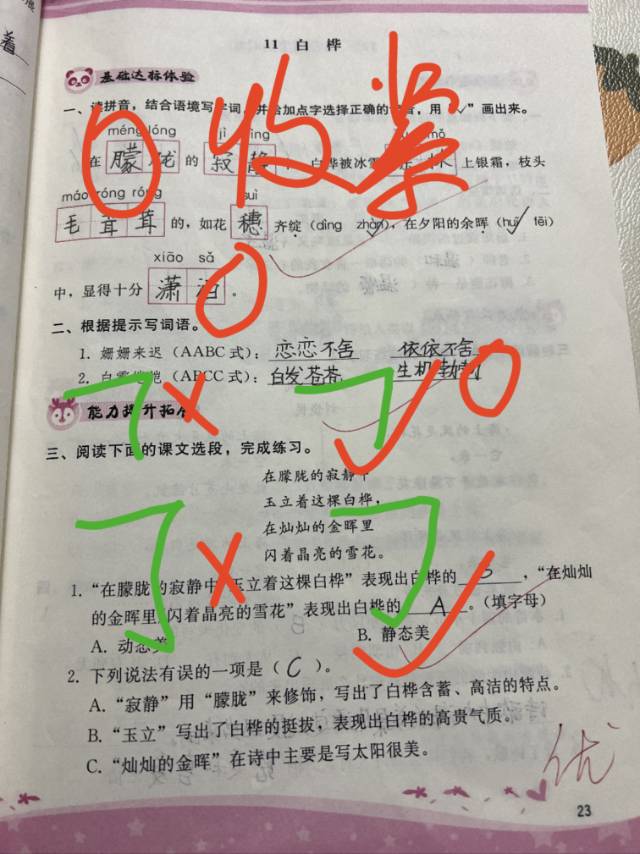 11 白桦
基础达标体验
一、读拼音，结合语境写字词，并给加点字选择正确的读音，用“√”画出来。
méng lóng jì jìng
在朦胧的寂静 白桦被冰雪 上银霜，枝头
máo róng róng suì
毛茸茸的，如花穗齐绽（dìng zhàn），在夕阳的余晖（huī fēi）
xiāo sǎ
中，显得十分潇洒。
收学
二、根据提示写词语。
1. 姗姗来迟（AABC式）：恋恋不舍 依依不舍
2. 白雪皑皑（ABCC式）：白发苍苍 生机勃勃
能力提升拓展
三、阅读下面的课文选段，完成练习。
在朦胧的寂静中
玉立着这棵白桦，
在灿灿的金晖里
闪着晶亮的雪花。
1. “在朦胧的寂静中 玉立着这棵白桦”表现出白桦的 B ，“在灿灿
的金晖里 闪着晶亮的雪花”表现出白桦的 A 。（填字母）
A. 动态美 B. 静态美
2. 下列说法有误的一项是（ C ）。
A. “寂静”用“朦胧”来修饰，写出了白桦含蓄、高洁的特点。
B. “玉立”写出了白桦的挺拔，表现出白桦的高贵气质。
C. “灿灿的金晖”在诗中主要是写太阳很美。
优
23